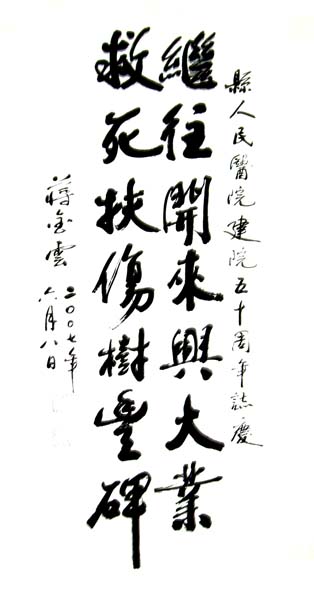 縣人民醫院建院五十周年誌慶
繼往開來興大業
救死扶傷樹豐碑
蔣金雲
二〇〇七年
六月八日